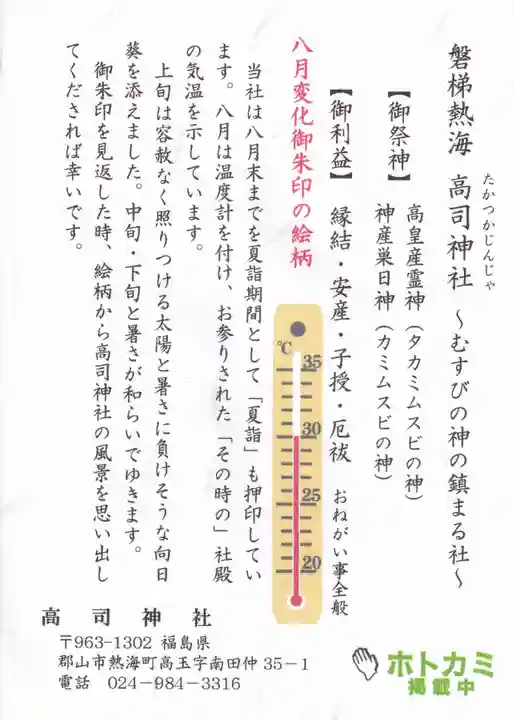 磐梯熱海 高司神社 ～むすびの神の鎮まる社～
たかつかじんじゃ
【御祭神】 高皇産霊神（タカミムスビの神）
神産巣日神（カミムスビの神）
【御利益】 縁結・安産・子授・厄祓 おねがい事全般
八月変化御朱印の絵柄
当社は八月末までを夏詣期間として「夏詣」も押印してい
ます。八月は温度計を付け、お参りされた「その時の」社殿
の気温を示しています。
上旬は容赦なく照りつける太陽と暑さに負けそうな向日
葵を添えました。中旬・下旬と暑さが和らいでゆきます。
御朱印を見返した時、絵柄から高司神社の風景を思い出し
てくだされば幸いです。
℃
35
30
25
20
高司神社
〒963-1302 福島県
郡山市熱海町高玉字南田仲35－1
電話 024-984-3316
ホトカミ
掲載中